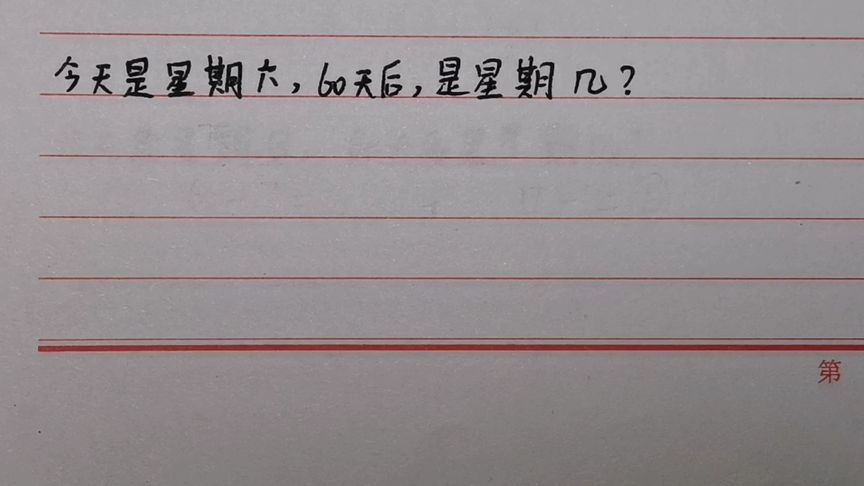 今天是星期六，60天后，是星期几？
第